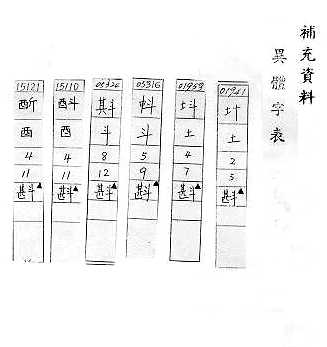 補充資料
異體字表
01941
土
2
5
斟▲
土
4
7
斟▲
05316
斗
5
9
斟▲
斗
8
12
斟▲
15110
酙
酉
4
11
斟▲
15121
酉
4
11
斟▲